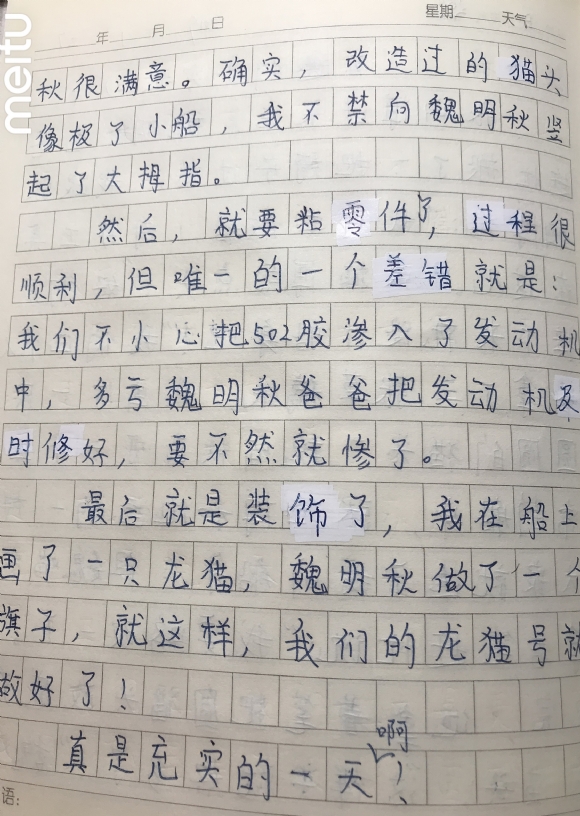 meitu
年 月 日 星期 天气
秋很满意。确实，改造过的猫头
像极了小船，我不禁向魏明秋竖
起了大拇指。
然后，就要粘零件了，过程很
顺利，但唯一的一个差错就是：
我们不小心把502胶渗入了发动机
中，多亏魏明秋爸爸把发动机及
时修好，要不然就惨了。
最后就是装饰了，我在船上
画了一只龙猫，魏明秋做了一个
旗子，就这样，我们的龙猫号就
做好了！
真是充实的一天啊！
语：